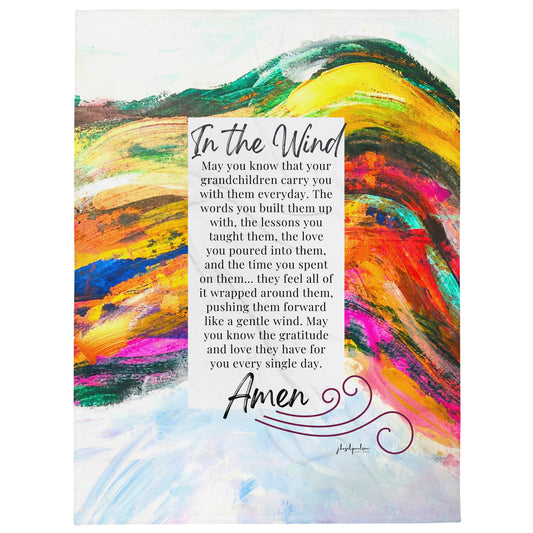 In the Wind
May you know that your
grandchildren carry you
with them everyday. The
words you built them up
with, the lessons you
taught them, the love
you poured into them,
and the time you spent
on them... they feel all of
it wrapped around them,
pushing them forward
like a gentle wind. May
you know the gratitude
and love they have for
you every single day.
Amen